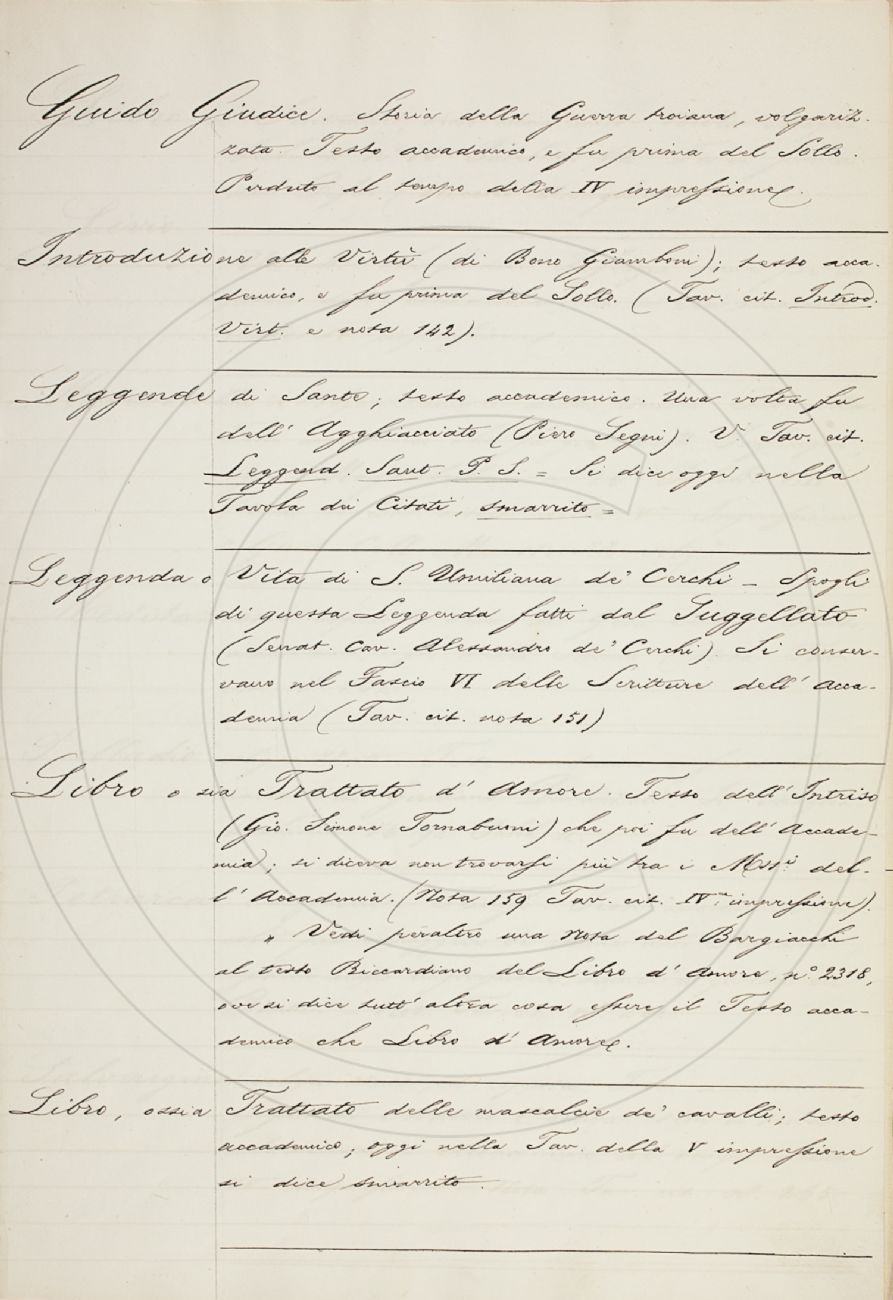 Guido Giudice. Storia della Guerra troiana, volgariz-
zata. Testo accademico, e fu prima del Sollo.
Perduto al tempo della IV impressione.
Introduzione alle Virtù (di Bono Giamboni); testo acca-
demico, e fu prima del Sollo. (Tav. cit. Introd.
Virt. e nota 142).
Leggende di Sante; testo accademico. Una volta fu
dell' Agghiacciato (Piero Segni). V. Tav. cit.
Leggend. Sant. P. S. = Si dice oggi nella
Tavola dei Citati, smarrito =
Leggenda o Vita di S. Umiliana de' Cerchi - Spogli
di questa Leggenda fatti dal Suggellato
(Senat. Cav. Alessandro de' Cerchi). Si conser-
vano nel Fascio VI delle Scritture dell' Acca-
demia (Tav. cit. nota 151)
Libro o sia Trattato d' Amore. Testo dell' Intriso
(Gio. Simone Tornabuoni) che poi fu dell' Accade-
mia; si diceva non trovarsi più tra i Mss.i del-
l' Accademia. (Nota 159 Tav. cit. IVa impressione).
" Vedi peraltro una Nota del Bargiacchi
al testo Riccardiano del Libro d' Amore, n.° 2318,
ove si dice tutt' altra cosa essere il Testo acca-
demico che Libro d' Amore.
Libro, ossia Trattato delle mascalcie de' cavalli; testo
accademico; oggi nella Tav. della V impressione
si dice smarrito.